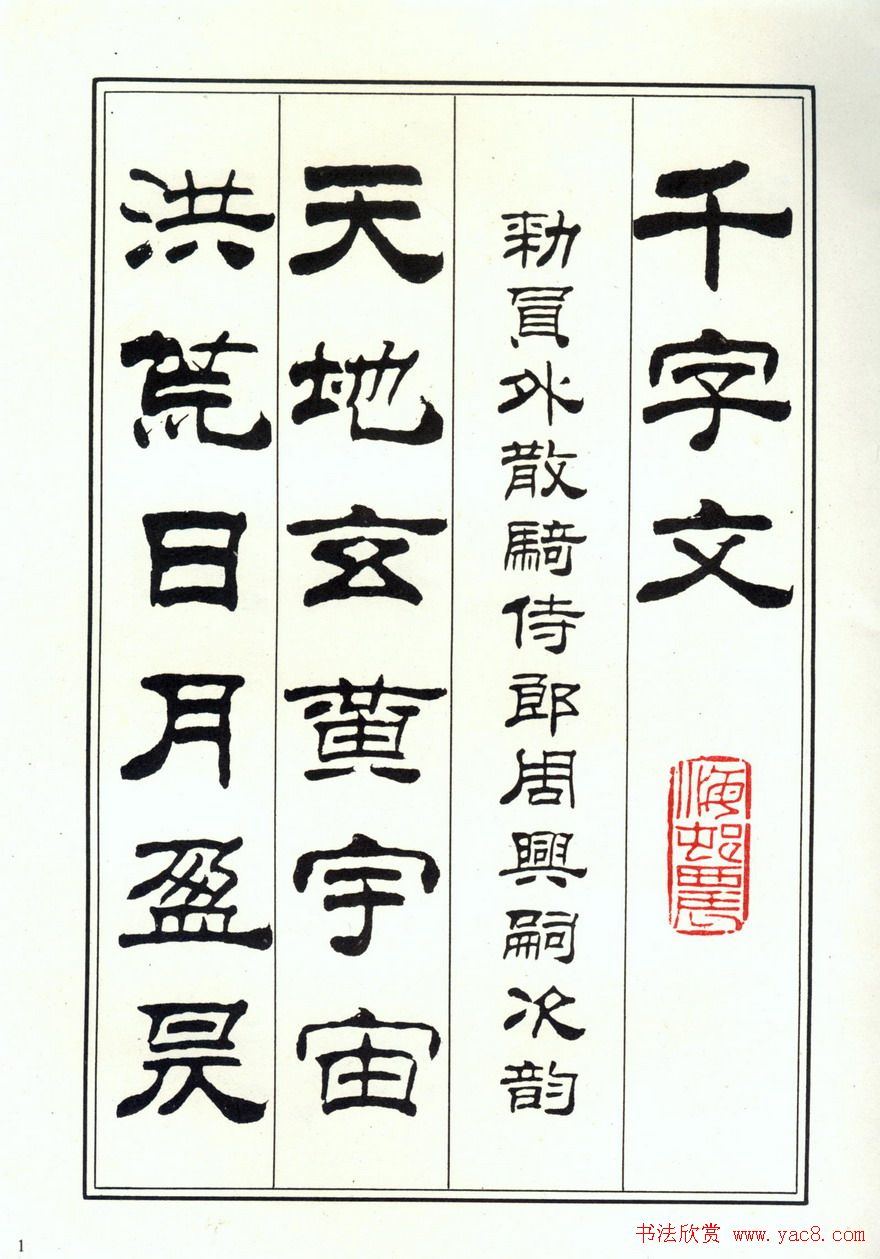 千字文
勅員外散騎侍郎周興嗣次韵
天地玄黄宇宙
洪荒日月盈昃
1
书法欣赏 www.yac8.com